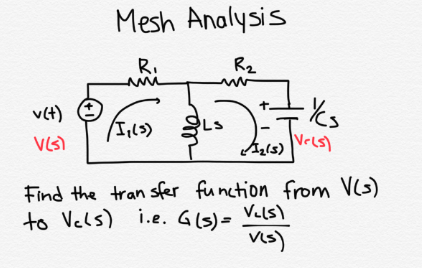 Mesh Analysis
R₁
R₂
v(t)
V(s)
I₁(s)
Ls
I₂(s)
+
-
1/Cs
Vc(s)
Find the transfer function from V(s)
to Vc(s) i.e. G(s) = Vc(s)/V(s)